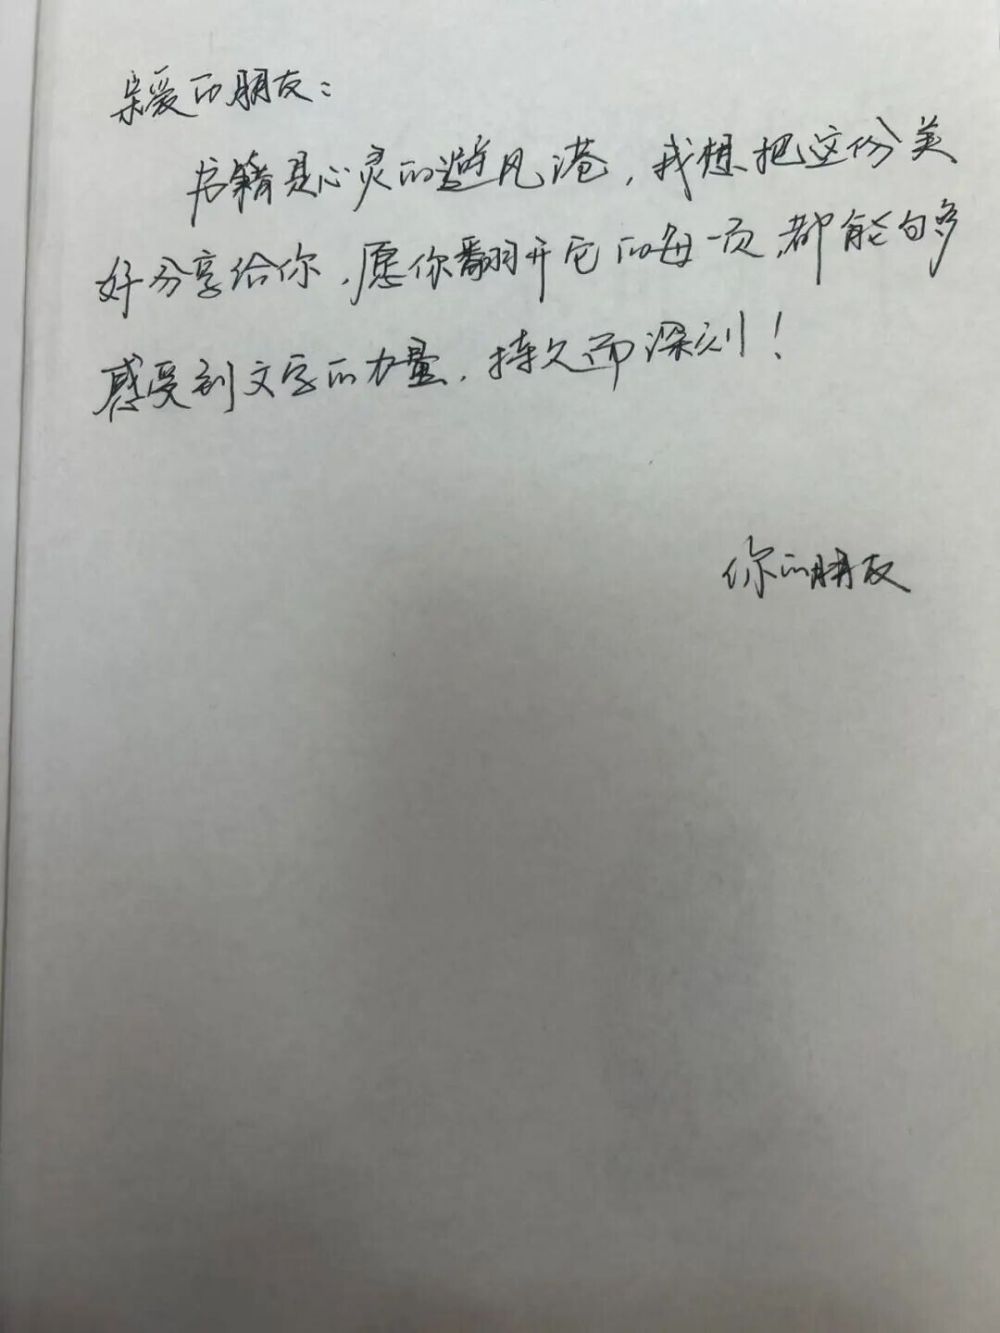 亲爱的朋友：
书籍是心灵的避风港，我想把这份美
好分享给你，愿你翻开它的每一页，都能够
感受到文字的力量，持久而深刻！
你的朋友